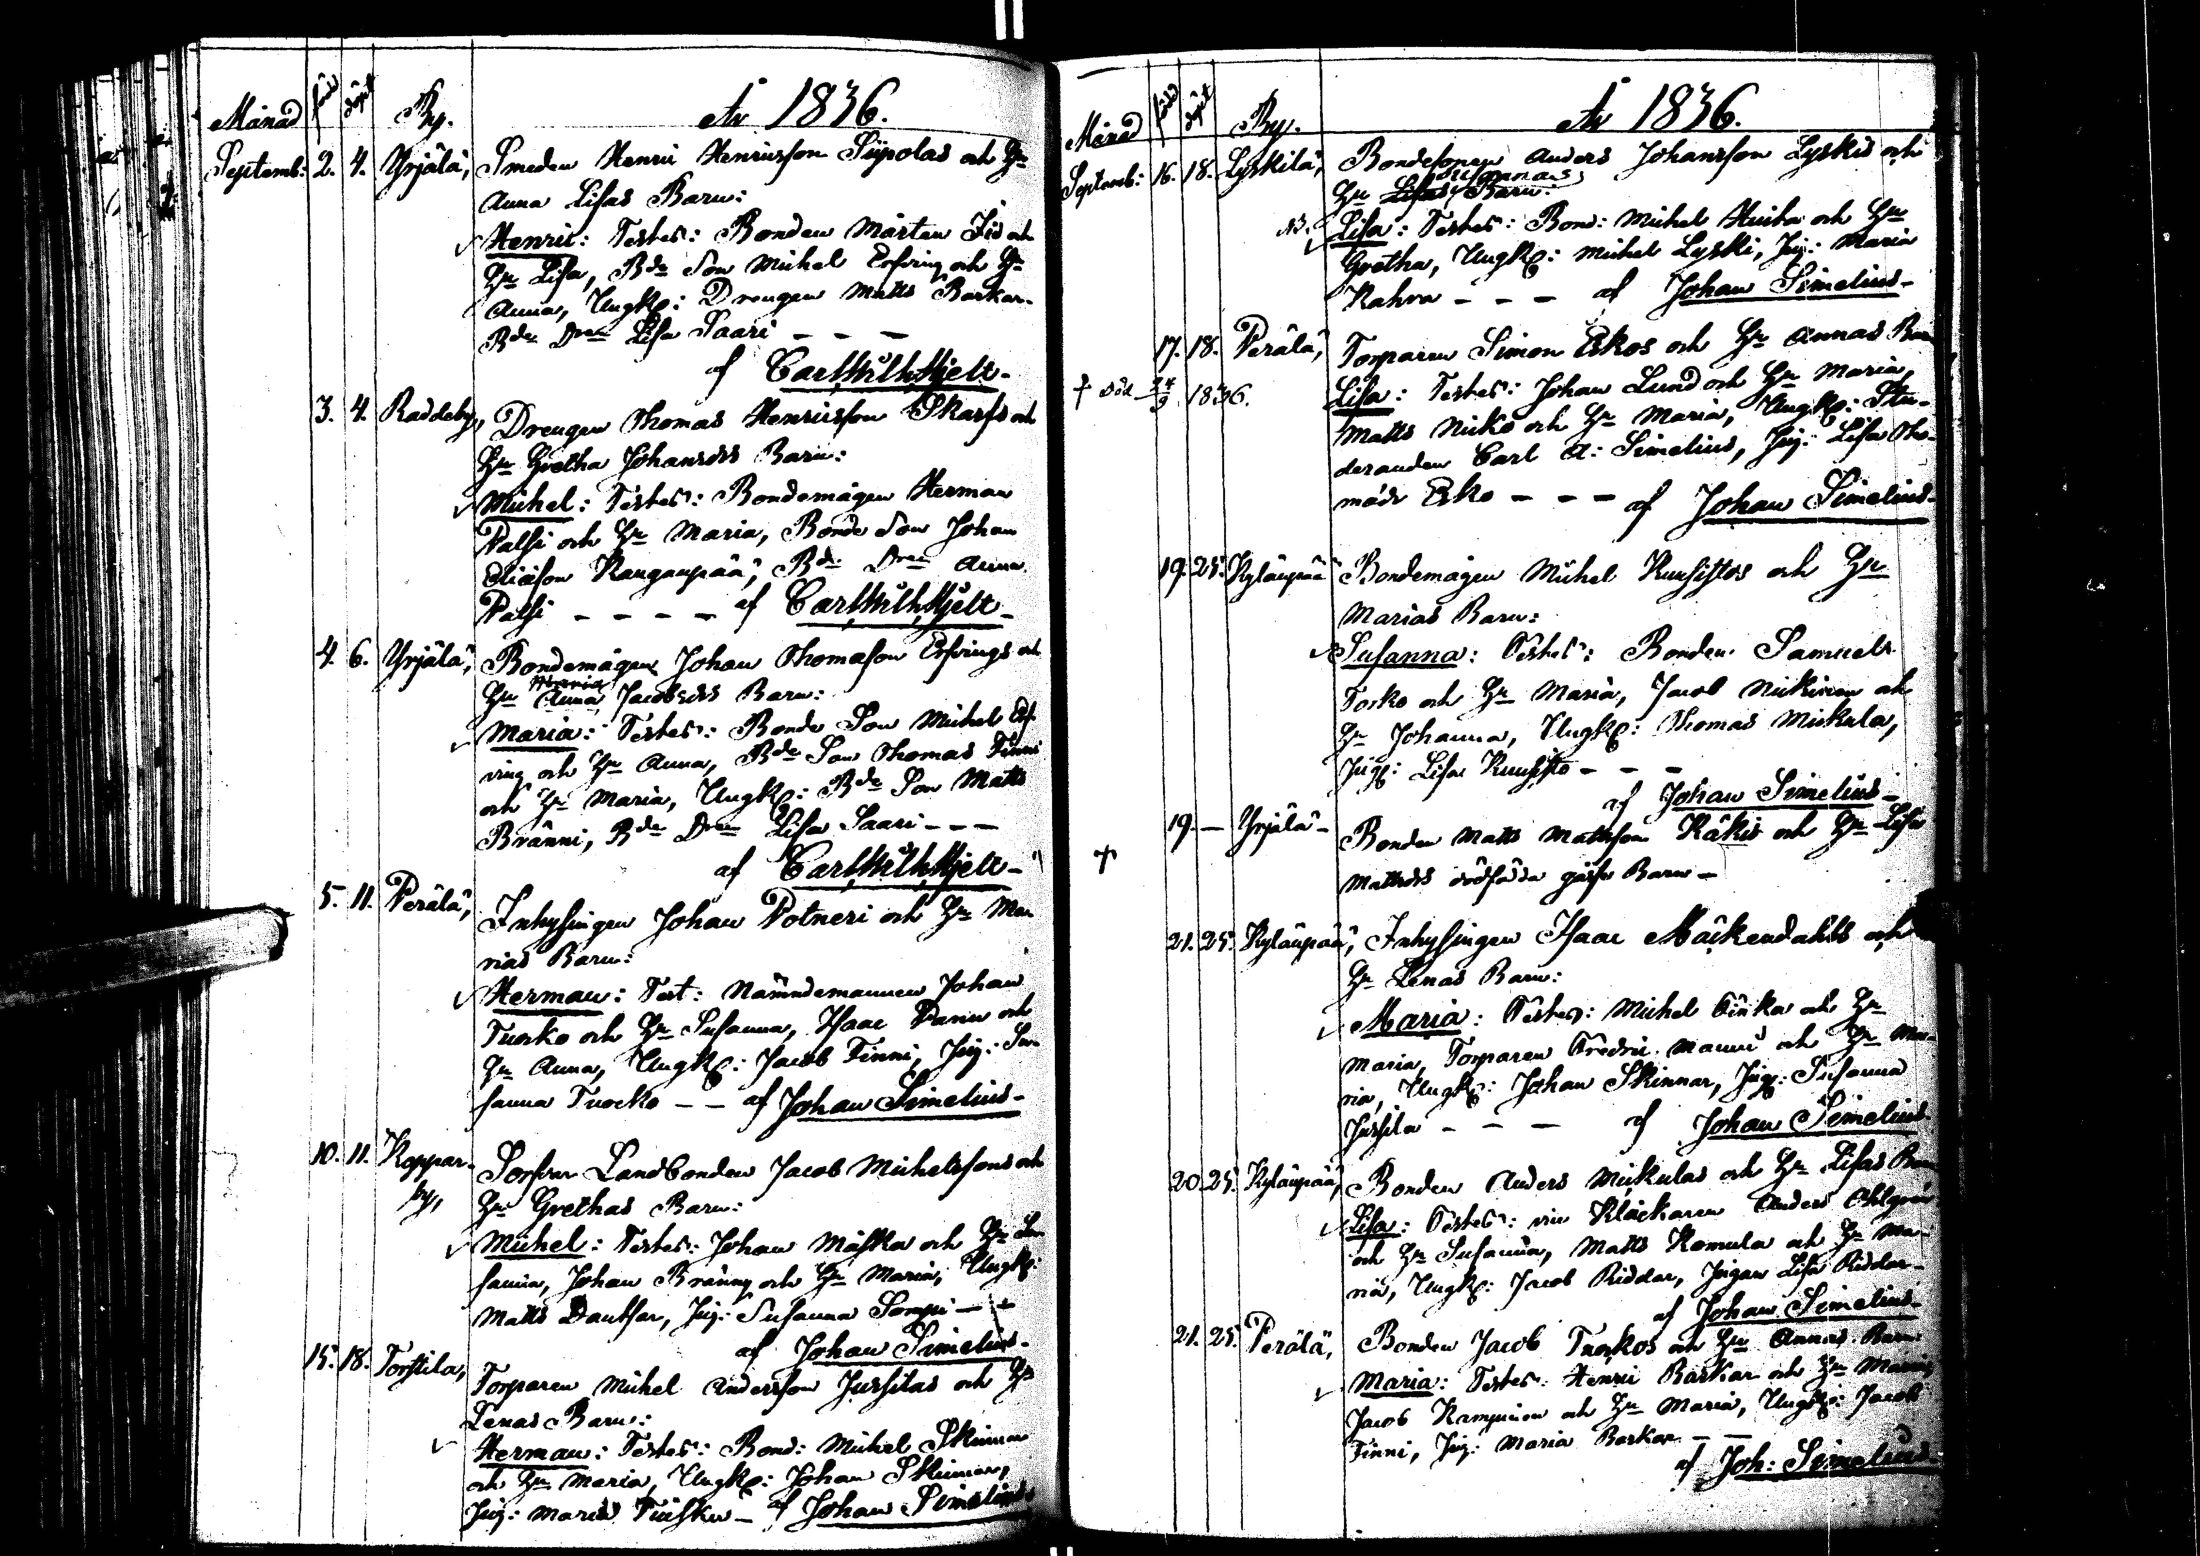 Månad född döpt By. År 1836.
Septemb: 2. 4. Yrjälä, Smeden Henric Henricsson Siipolas och Hu
Anna Lisas Barn:
Henric: Testes: Bonden Mårten Iso och
Hu Lisa, Bde Son Michel Erfving och Hu
Anna, Ungk: Drengen Matts Barkar
Bde Dren Lisa Saari - - -
af Carl Wilh Hjelt -
3. 4. Raddeby, Drengen Thomas Henricsson Skarfs och
Hu Gretha Johansdrs Barn:
Michel: Testes: Bondemågen Herman
Palsi och Hu Maria, Bonde Son Johan
Eliäson Kanganpää, Bde Dren Anna
Palsi - - - - af Carl Wilh Hjelt -
4. 6. Yrjälä, Bondemågen Johan Thomason Erfvings och
Hu Anna Maria Jacobsdrs Barn:
Maria: Testes: Bonde Son Michel Erf-
ving och Hu Anna, Bde Son Thomas Finni
och Hu Maria, Ungk: Bde Son Matts
Bränni, Bde Dren Lisa Saari - - -
af Carl Wilh Hjelt -
5. 11. Perälä, Inhysingen Johan Potneri och Hu Ma-
rias Barn:
Herman: Test: Nämndemannen Johan
Tuorko och Hu Susanna, Isaac och
Hu Anna, Ungk: Jacob Finni, Jug: Su-
sanna Tuorko - - af Johan Simelius -
10. 11. Koppar- Landbonden Jacob Michelssons och
by, Hu Grethas Barn:
Michel: Testes: Johan Mäska och Hu Su-
sanna, Johan Bränny och Hu Maria, Ungk:
Matts Dantsar, Jug: Susanna Sompi - -
af Johan Simelius -
15. 18. Torstila, Torparen Michel Andersson Jussilas och Hu
Lenas Barn:
Herman: Testes: Bond: Michel Skinnar
och Hu Maria, Ungk: Johan Skinnar,
Jug: Maria - af Johan Simelius
Månad född döpt By. År 1836.
Septemb: 16. 18. Lyskilä, Bondesonen Anders Johansson Lyskis och
Hu Lisas Susannas Barn:
Nb. Lisa: Testes: Bond: Michel Huika och Hu
Gretha, Ungk: Michel Lyski, Jug: Maria
Kahra - - - af Johan Simelius -
17. 18. Perälä, Torparen Simon Eskos och Hu Annas Barn
† död 24/9 1836. Lisa: Testes: Johan Lund och Hu Maria,
Matts Nicko och Hu Maria, Ungk: Stu-
deranden Carl A: Simelius, Jug: Lisa
Esko - - - af Johan Simelius -
19. 25. Kyläupää Bondemågen Michel Kuusistos och Hu
Marias Barn:
Susanna: Testes: Bonden Samuel
Torko och Hu Maria, Jacob och
Hu Johanna, Ungk: Thomas Mickula,
Jug: Lisa Kuusisto - - -
af Johan Simelius -
19. - Yrjälä - Bonden Matts Mattsson Käkis och Hu Lisa
† Mattsdrs dödfödda gåsse Barn -
21. 25. Kyläupää, Inhysingen Isaac Mäckendahls och
Hu Lenas Barn:
Maria: Testes: Michel och Hu
Maria, Torparen Fredric Mauri och Hu Ma-
ria, Ungk: Johan Skinnar, Jug: Susanna
Jussila - - - af Johan Simelius
20. 25. Kyläupää, Bonden Anders Mickulas och Hu Lisas Barn
Lisa: Testes: Klåckaren Anders Ahlgren
och Hu Susanna, Matts Komula och Hu Ma-
ria, Ungk: Jacob Riddar, Jugan Lisa Riddar -
af Johan Simelius
21. 25. Perälä, Bonden Jacob Tuorkos och Hu Annas Barn
Maria: Testes: Henric Barkar och Hu Maria,
Jacob Kampinen och Hu Maria, Ungk: Jacob
Finni, Jug: Maria Barkar - -
af Joh: Simelius -